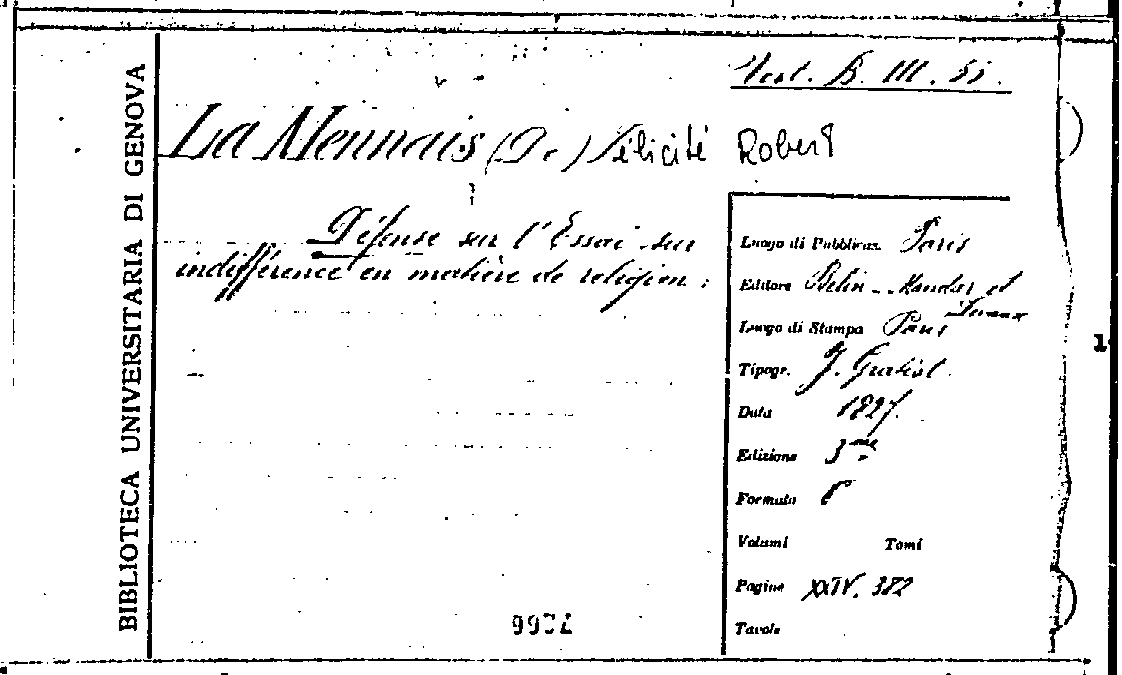 BIBLIOTECA UNIVERSITARIA DI GENOVA
Vest. B. III. 55.
La Mennais (De) Félicité Robert
Défense sur l'Essai sur
indifférence en matière de religion :
Luogo di Pubblicaz. Paris
Editore Belin-Mandar et
Devaux
Luogo di Stampa Paris
Tipogr. J. Gratiot.
Data 1827.
Edizione 3me
Formato 8°
Volumi Tomi
Pagine XXIV. 382
Tavole